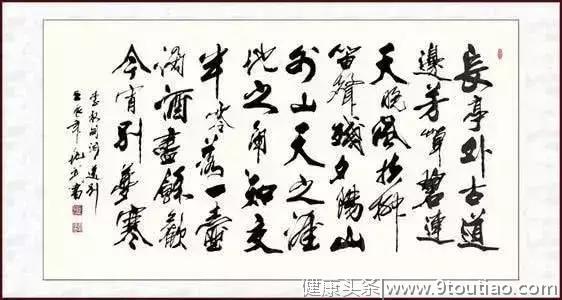 長亭外古道
邊芳草碧連
天晚風拂柳
笛聲殘夕陽山
外山天之涯
地之角知交
半零落一壺
濁酒盡餘歡
今宵別夢寒
李叔同詞送別
壬辰年書
健康头条 www.9toutiao.com